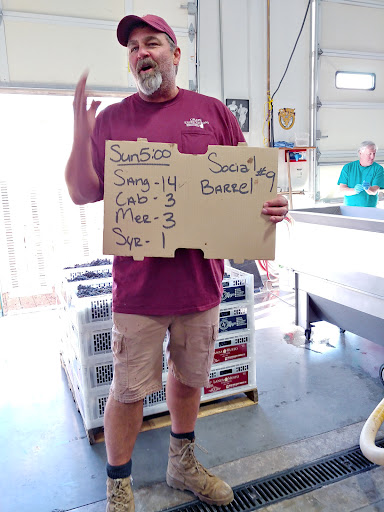 Sun5:00
Sang - 14
Cab - 3
Mer - 3
Syr - 1
Social #9
Barrel